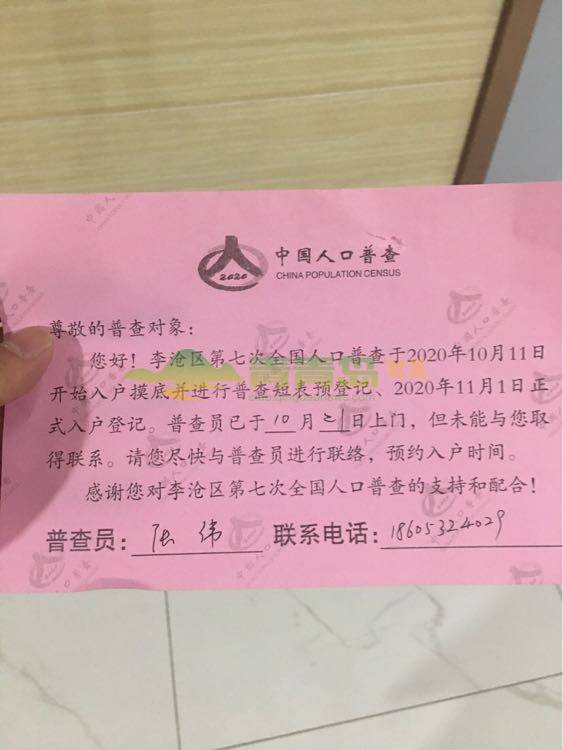 2020
中国人口普查
CHINA POPULATION CENSUS
尊敬的普查对象：
您好！李沧区第七次全国人口普查于2020年10月11日
开始入户摸底并进行普查短表预登记、2020年11月1日正
式入户登记。普查员已于10月21日上门，但未能与您取
得联系。请您尽快与普查员进行联络，预约入户时间。
感谢您对李沧区第七次全国人口普查的支持和配合！
普查员：张 伟 联系电话：18605324029